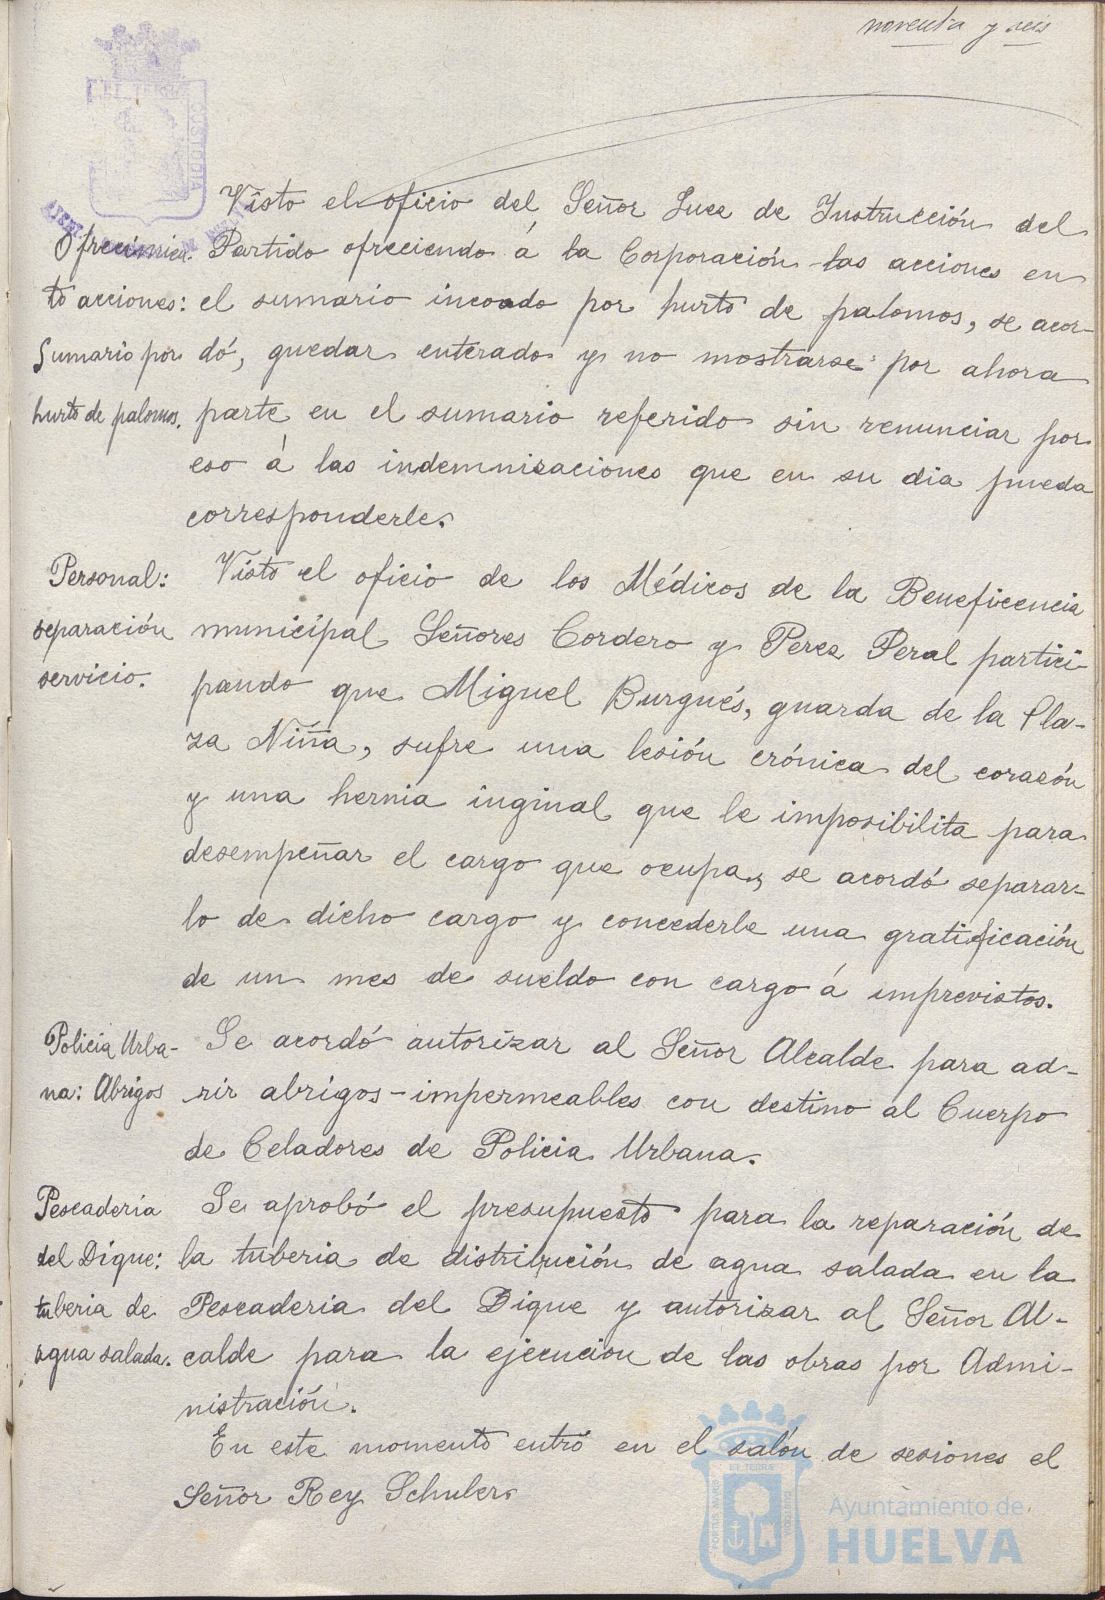 noventa y seis
EL TERRAE
CUSTODIA
Visto el oficio del Señor Juez de Instrucción del
Ofrecimien- Partido ofreciendo á la Corporación las acciones en
to acciones: el sumario incoado por hurto de palomos, se acor-
Sumario por dó, quedar enterado y no mostrarse por ahora
hurto de palomos. parte en el sumario referido sin renunciar por
eso á las indemnizaciones que en su dia pueda
corresponderle.
Personal: Visto el oficio de los Médicos de la Beneficencia
separación municipal Señores Cordero y Perez Peral partici-
servicio. pando que Miguel Burgués, guarda de la Pla-
za Niña, sufre una lesión crónica del corazón
y una hernia inginal que le imposibilita para
desempeñar el cargo que ocupa, se acordó separar-
lo de dicho cargo y concederle una gratificación
de un mes de sueldo con cargo á imprevistos.
Policia Urba- Se acordó autorizar al Señor Alcalde para ad-
na: Abrigos rir abrigos-impermeables con destino al Cuerpo
de Celadores de Policia Urbana.
Pescaderia Se aprobó el presupuesto para la reparación de
del Dique: la tuberia de distribución de agua salada en la
tuberia de Pescaderia del Dique y autorizar al Señor Al-
agua salada. calde para la ejecucion de las obras por Admi-
nistración.
En este momento entró en el salón de sesiones el
Señor Rey Schuler.
EL TERRAE
PORTUS MARIS
CUSTODIA
Ayuntamiento de
HUELVA